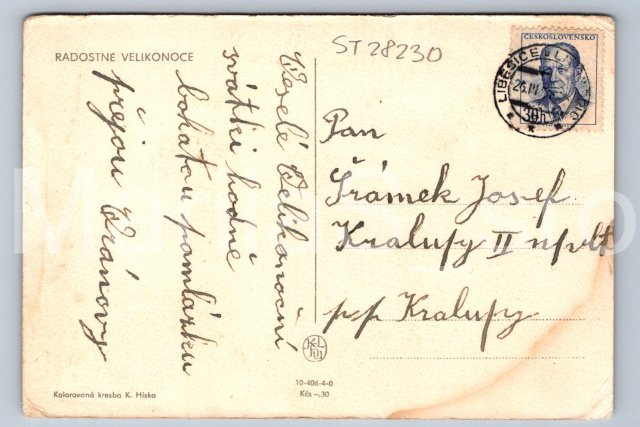 RADOSTNÉ VELIKONOCE
ST 28230
ČESKOSLOVENSKO
30h
LIBĚŠICE
26.III
Veselé Velikonoční
svátki hodně
bohatou pomlázku
přejou Vránovy
Pan
Šrámek Josef
Kralupy II n/vlt
p/p Kralupy
Kolorovaná kresba K. Híska
10-406-4-0
Kčs –.30